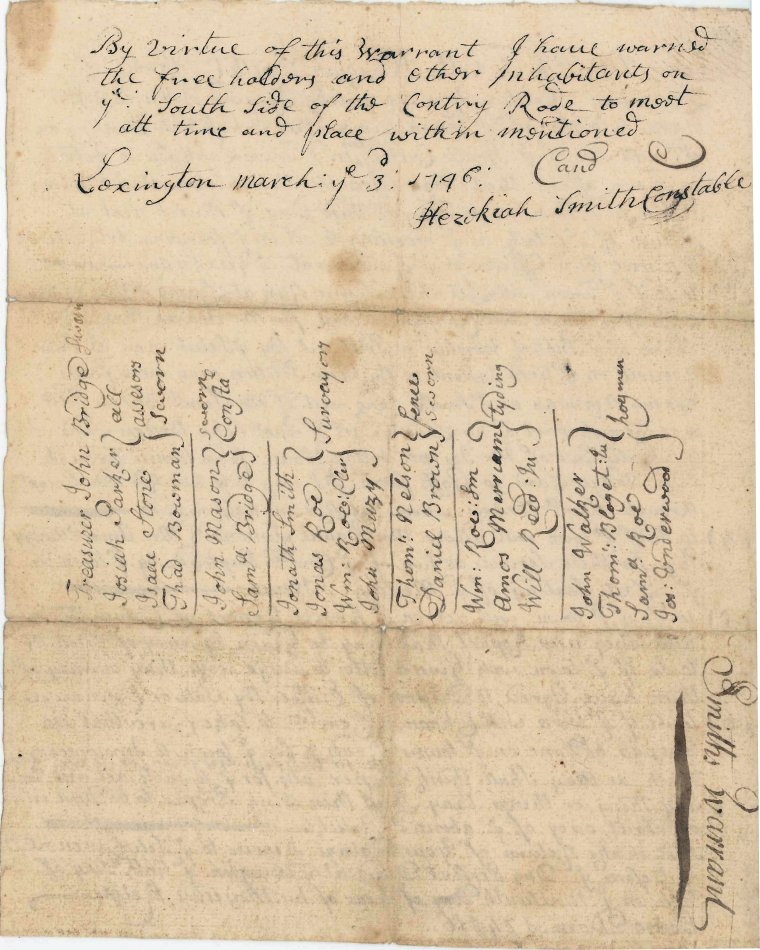 By Virtue of this Warrant I haue warned
the free holders and other Inhabitants on
ye: South Side of the Contry Rode to meet
att time and place within mentioned
Lexington march: ye 3d: 1746: Cand
Hezekiah Smith Constable
Treasurer John Bridge Sworn
Josiah Parker } all
Isaac Stone } assesors
Thad Bowman } Sworn
John Mason } sworn
Sama Bridge } Consta
Jonath Smith
Jonas Roe } Survayors
Wm: Roe: Cler
John Muzy
Thom: Nelson } fence
Daniel Brown } Sworn
Wm: Roe: Jnr
Amos Merriam } tyding
Will Reed Ju
John Walker
Thom: Bloget: Ju } hogmen
Sama Roe
Jos: Underwood
Smiths Warrant